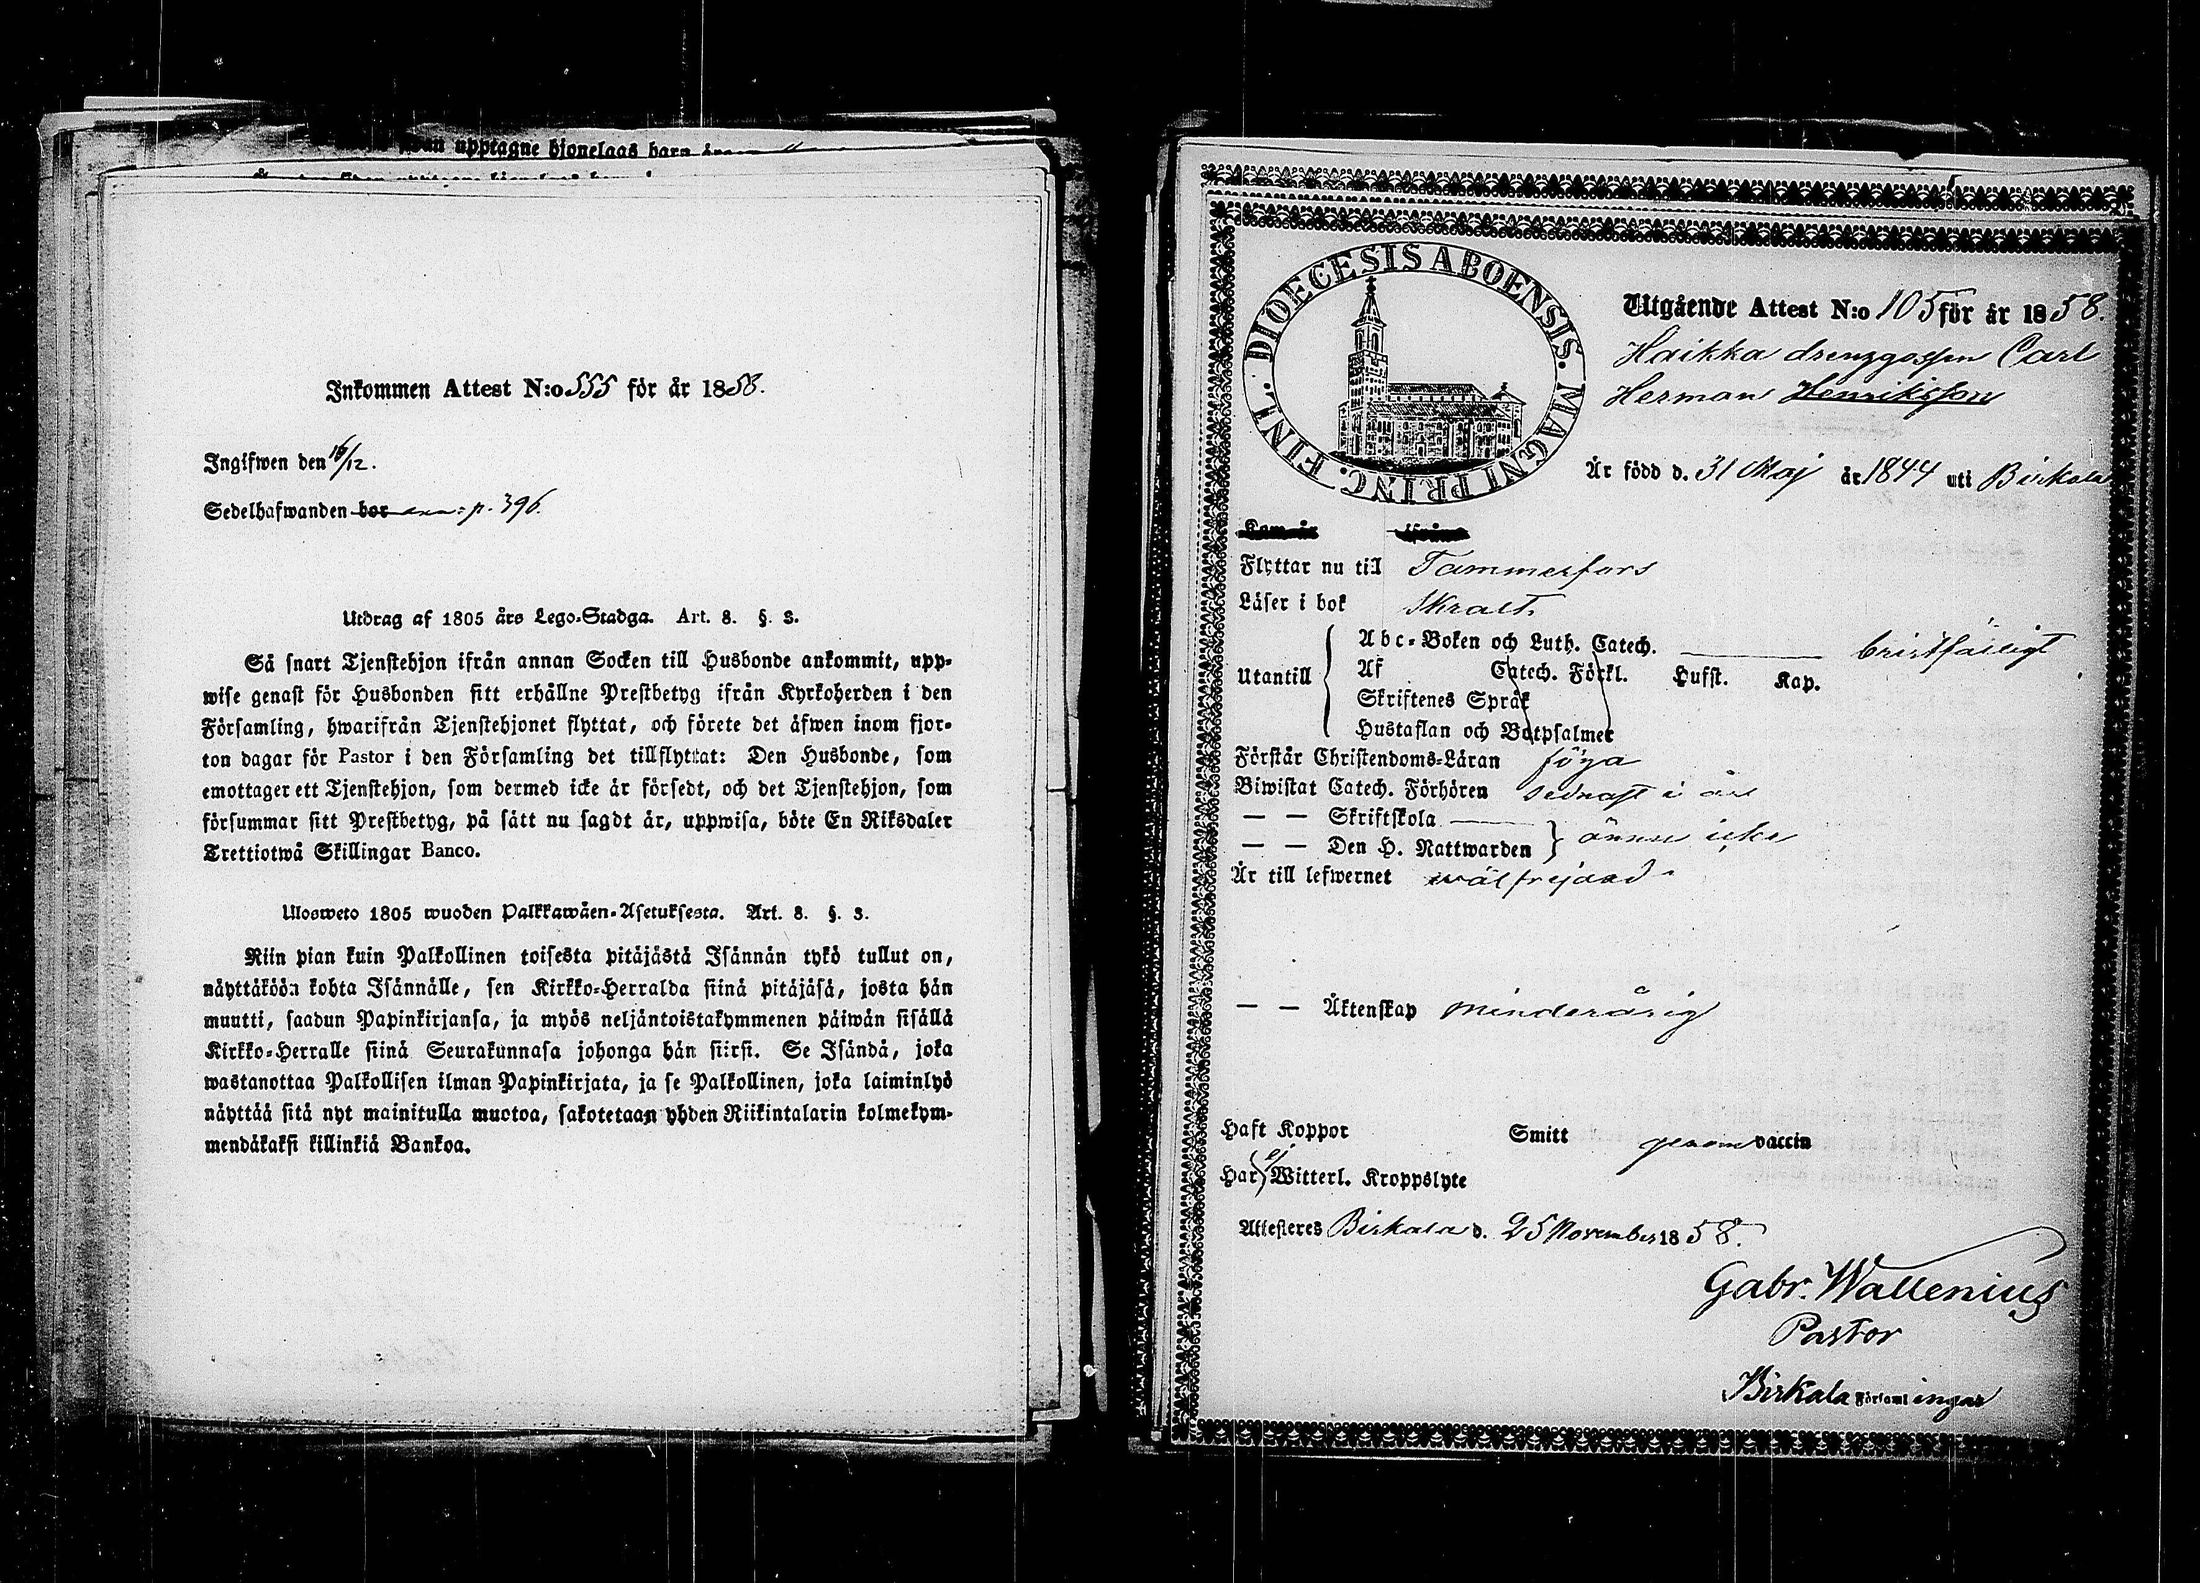 från upptagne hjonelags barn
Inkommen Attest N:o 555 för år 1858.
Ingifwen den 16/12.
Sedelhafwanden bor p. 396.
Utdrag af 1805 års Lego-Stadga. Art. 8. §. 3.
Så snart Tjenstehjon ifrån annan Socken till Husbonde ankommit, upp-
wise genast för Husbonden sitt erhållne Prestbetyg ifrån Kyrkoherden i den
Församling, hwarifrån Tjenstehjonet flyttat, och förete det äfwen inom fjor-
ton dagar för Pastor i den Församling det tillflyttat: Den Husbonde, som
emottager ett Tjenstehjon, som dermed icke är försedt, och det Tjenstehjon, som
försummar sitt Prestbetyg, på sätt nu sagdt är, uppwisa, böte En Riksdaler
Trettiotwå Skillingar Banco.
Ulosweto 1805 wuoden Palkkawäen-Asetuksesta. Art. 8. §. 3.
Niin pian kuin Palkollinen toisesta pitäjästä Isännän tykö tullut on,
näyttäköön kohta Isännälle, sen Kirkko-Herralda siinä pitäjäsä, josta hän
muutti, saadun Papinkirjansa, ja myös neljäntoistakymmenen päiwän sisällä
Kirkko-Herralle siinä Seurakunnasa johonga hän siirsi. Se Isändä, joka
wastanottaa Palkollisen ilman Papinkirjata, ja se Palkollinen, joka laiminlyö
näyttää sitä nyt mainitulla muotoa, sakotetaan yhden Riikintalarin kolmekym-
mendäkaksi killinkiä Bankoa.
DIOECESIS ABOENSIS. MAGNI PRINC. FINL.
Utgående Attest N:o 105 för år 1858.
Haikka drenggossen Carl
Herman Henriksson
Är född d. 31 Maj år 1844 uti Birkala
Kom år ifrån
Flyttar nu till Tammerfors
Läser i bok Skralt.
Utantill
Abc-Boken och Luth. Catech. bristfälligt
Af Catech. Förkl. Hufst. Kap.
Skriftenes Språk
Hustaflan och Botpsalmer
Förstår Christendoms-Läran föga
Biwistat Catech. Förhören sednast i år
— — Skriftskola
— — Den H. Nattwarden ännu icke
Är till lefwernet wälfrejdad
— — Äktenskap minderårig
Haft Koppor Smitt genom vaccin
Har ej Witterl. Kroppslyte
Attesteres Birkala d. 25 November 1858.
Gabr. Wallenius
Pastor
Birkala Församlingar